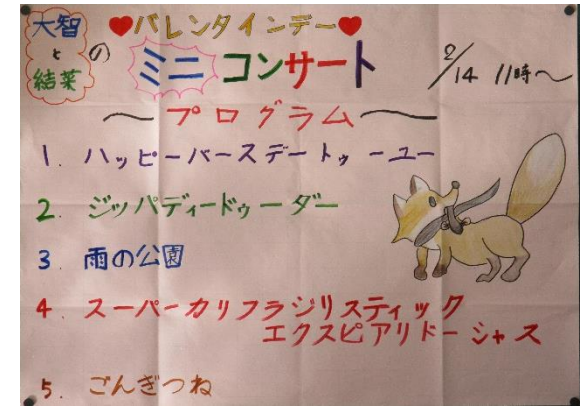 大智と結菜の
♥バレンタインデー♥
ミニコンサート
2/14 11時~
~プログラム~
1. ハッピーバースデートゥーユー
2. ジッパディードゥーダー
3 雨の公園
4. スーパーカリフラジリスティック
エクスピアリドーシャス
5. ごんぎつね